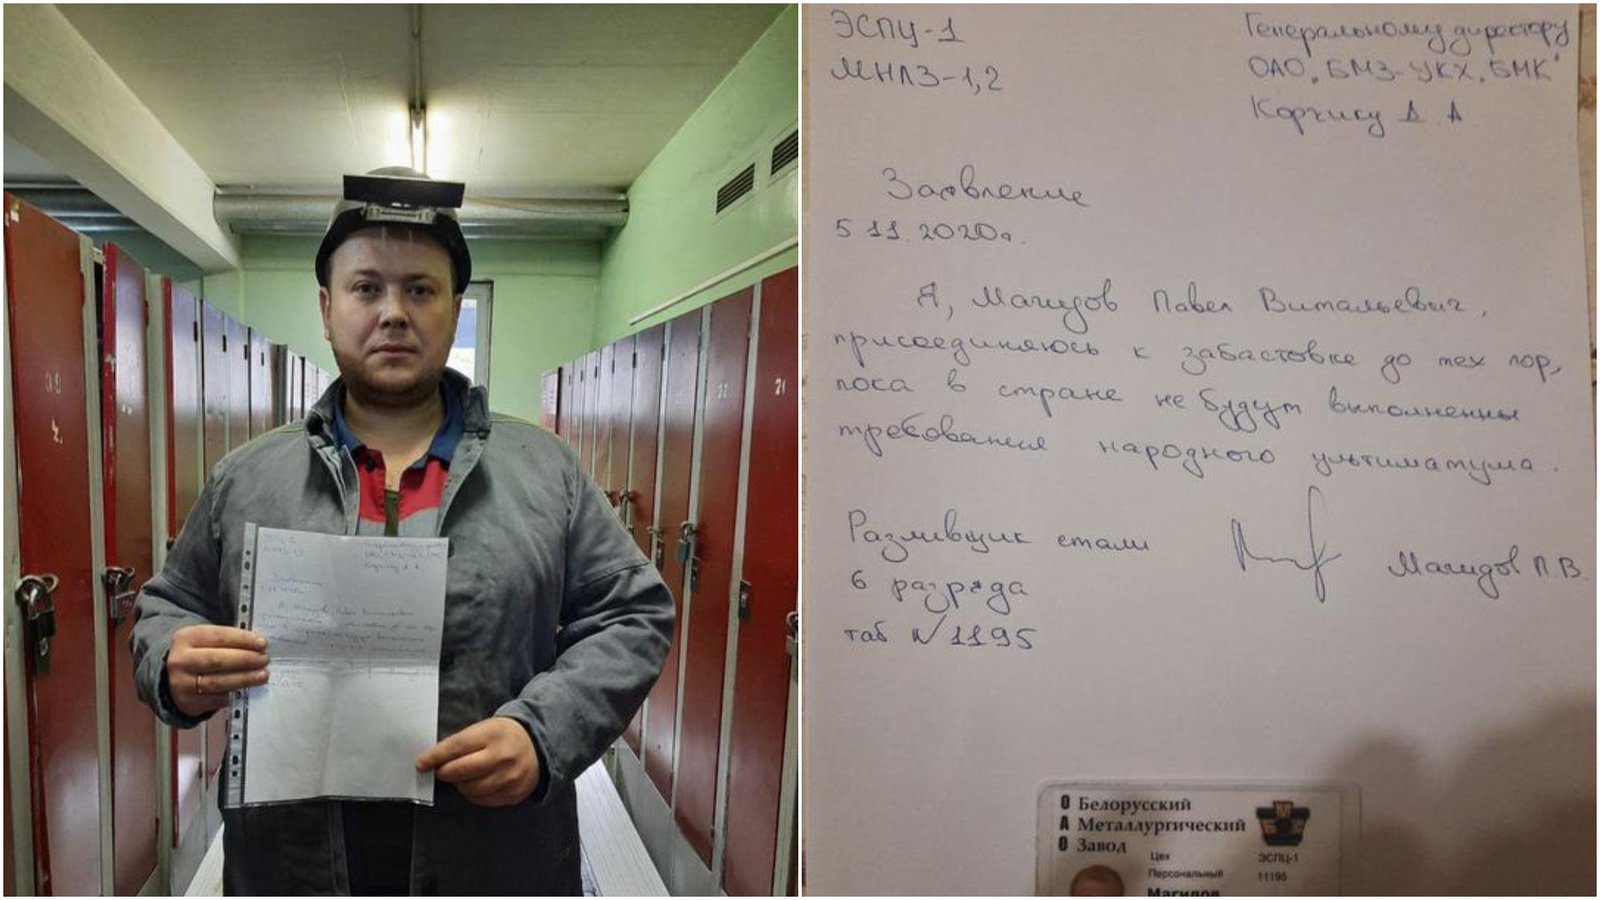 ЭСПЦ-1
МНЛЗ-1,2
Генеральному директору
ОАО "БМЗ-УКХ "БМК"
Корчику Д. А
Заявление
5 11. 2020г.
Я, Магидов Павел Витальевич,
присоединяюсь к забастовке до тех пор,
пока в стране не будут выполненны
требования народного ультиматума.
Разливщик стали
6 разряда
таб №11195
Магидов П.В.
ОАО
Белорусский
Металлургический
Завод
Цех ЭСПЦ-1
Персональный 11195
Магидов
22
21